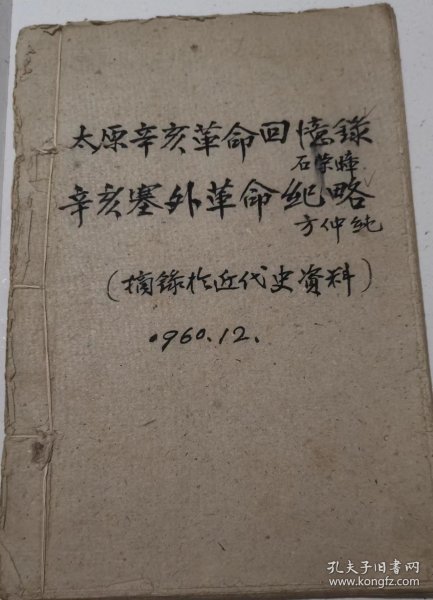 太原辛亥革命回憶錄
石荣暲
辛亥塞外革命紀略
方仲純
(摘錄於近代史资料)
1960.12.
孔夫子旧书网
www.kongfz.com